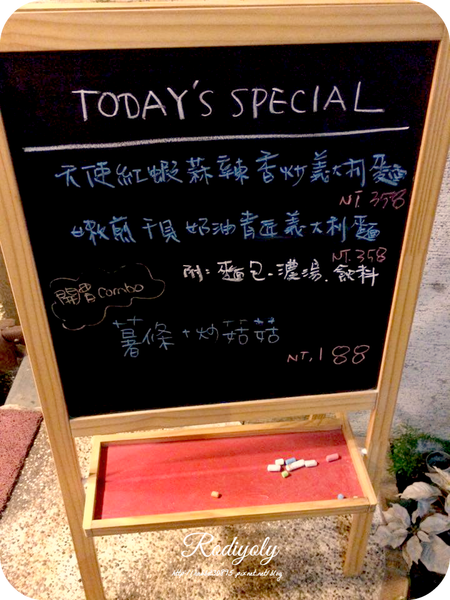 TODAY'S SPECIAL
天使紅蝦蒜辣香炒義大利麵
NT 358
煎干貝奶油青匠義大利麵
NT.358
附:麵包、濃湯、飲料
開胃combo
薯條+炒菇菇
NT.188
Radiyoly